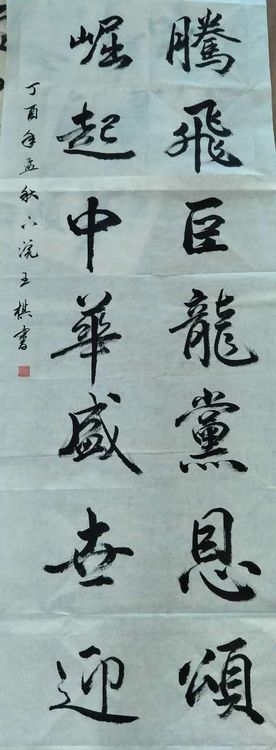 騰飛臣龍黨恩頌
崛起中華盛世迎
丁酉年孟秋六浣王棋書